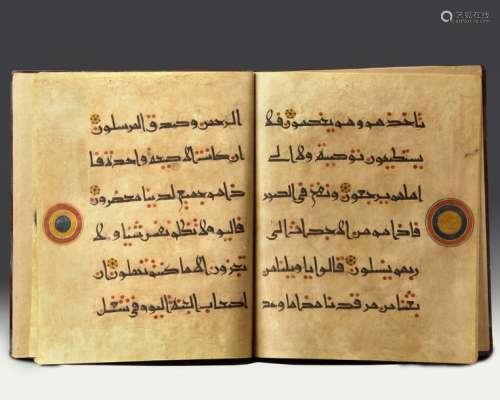 تاخذهم وهم يخصمون فلا
يستطيعون توصية ولا الى
اهلهم يرجعون ونفخ في الصور
فاذا هم من الاجداث الى
ربهم ينسلون قالوا يا ويلنا من
بعثنا من مرقدنا هذا ما وعد
الرحمن وصدق المرسلون
ان كانت الا صيحة واحدة فا
ذا هم جميع لدينا محضرون
فاليوم لا تظلم نفس شيا ولا
تجزون الا ما كنتم تعملون ان
اصحاب الجنة اليوم في شغل